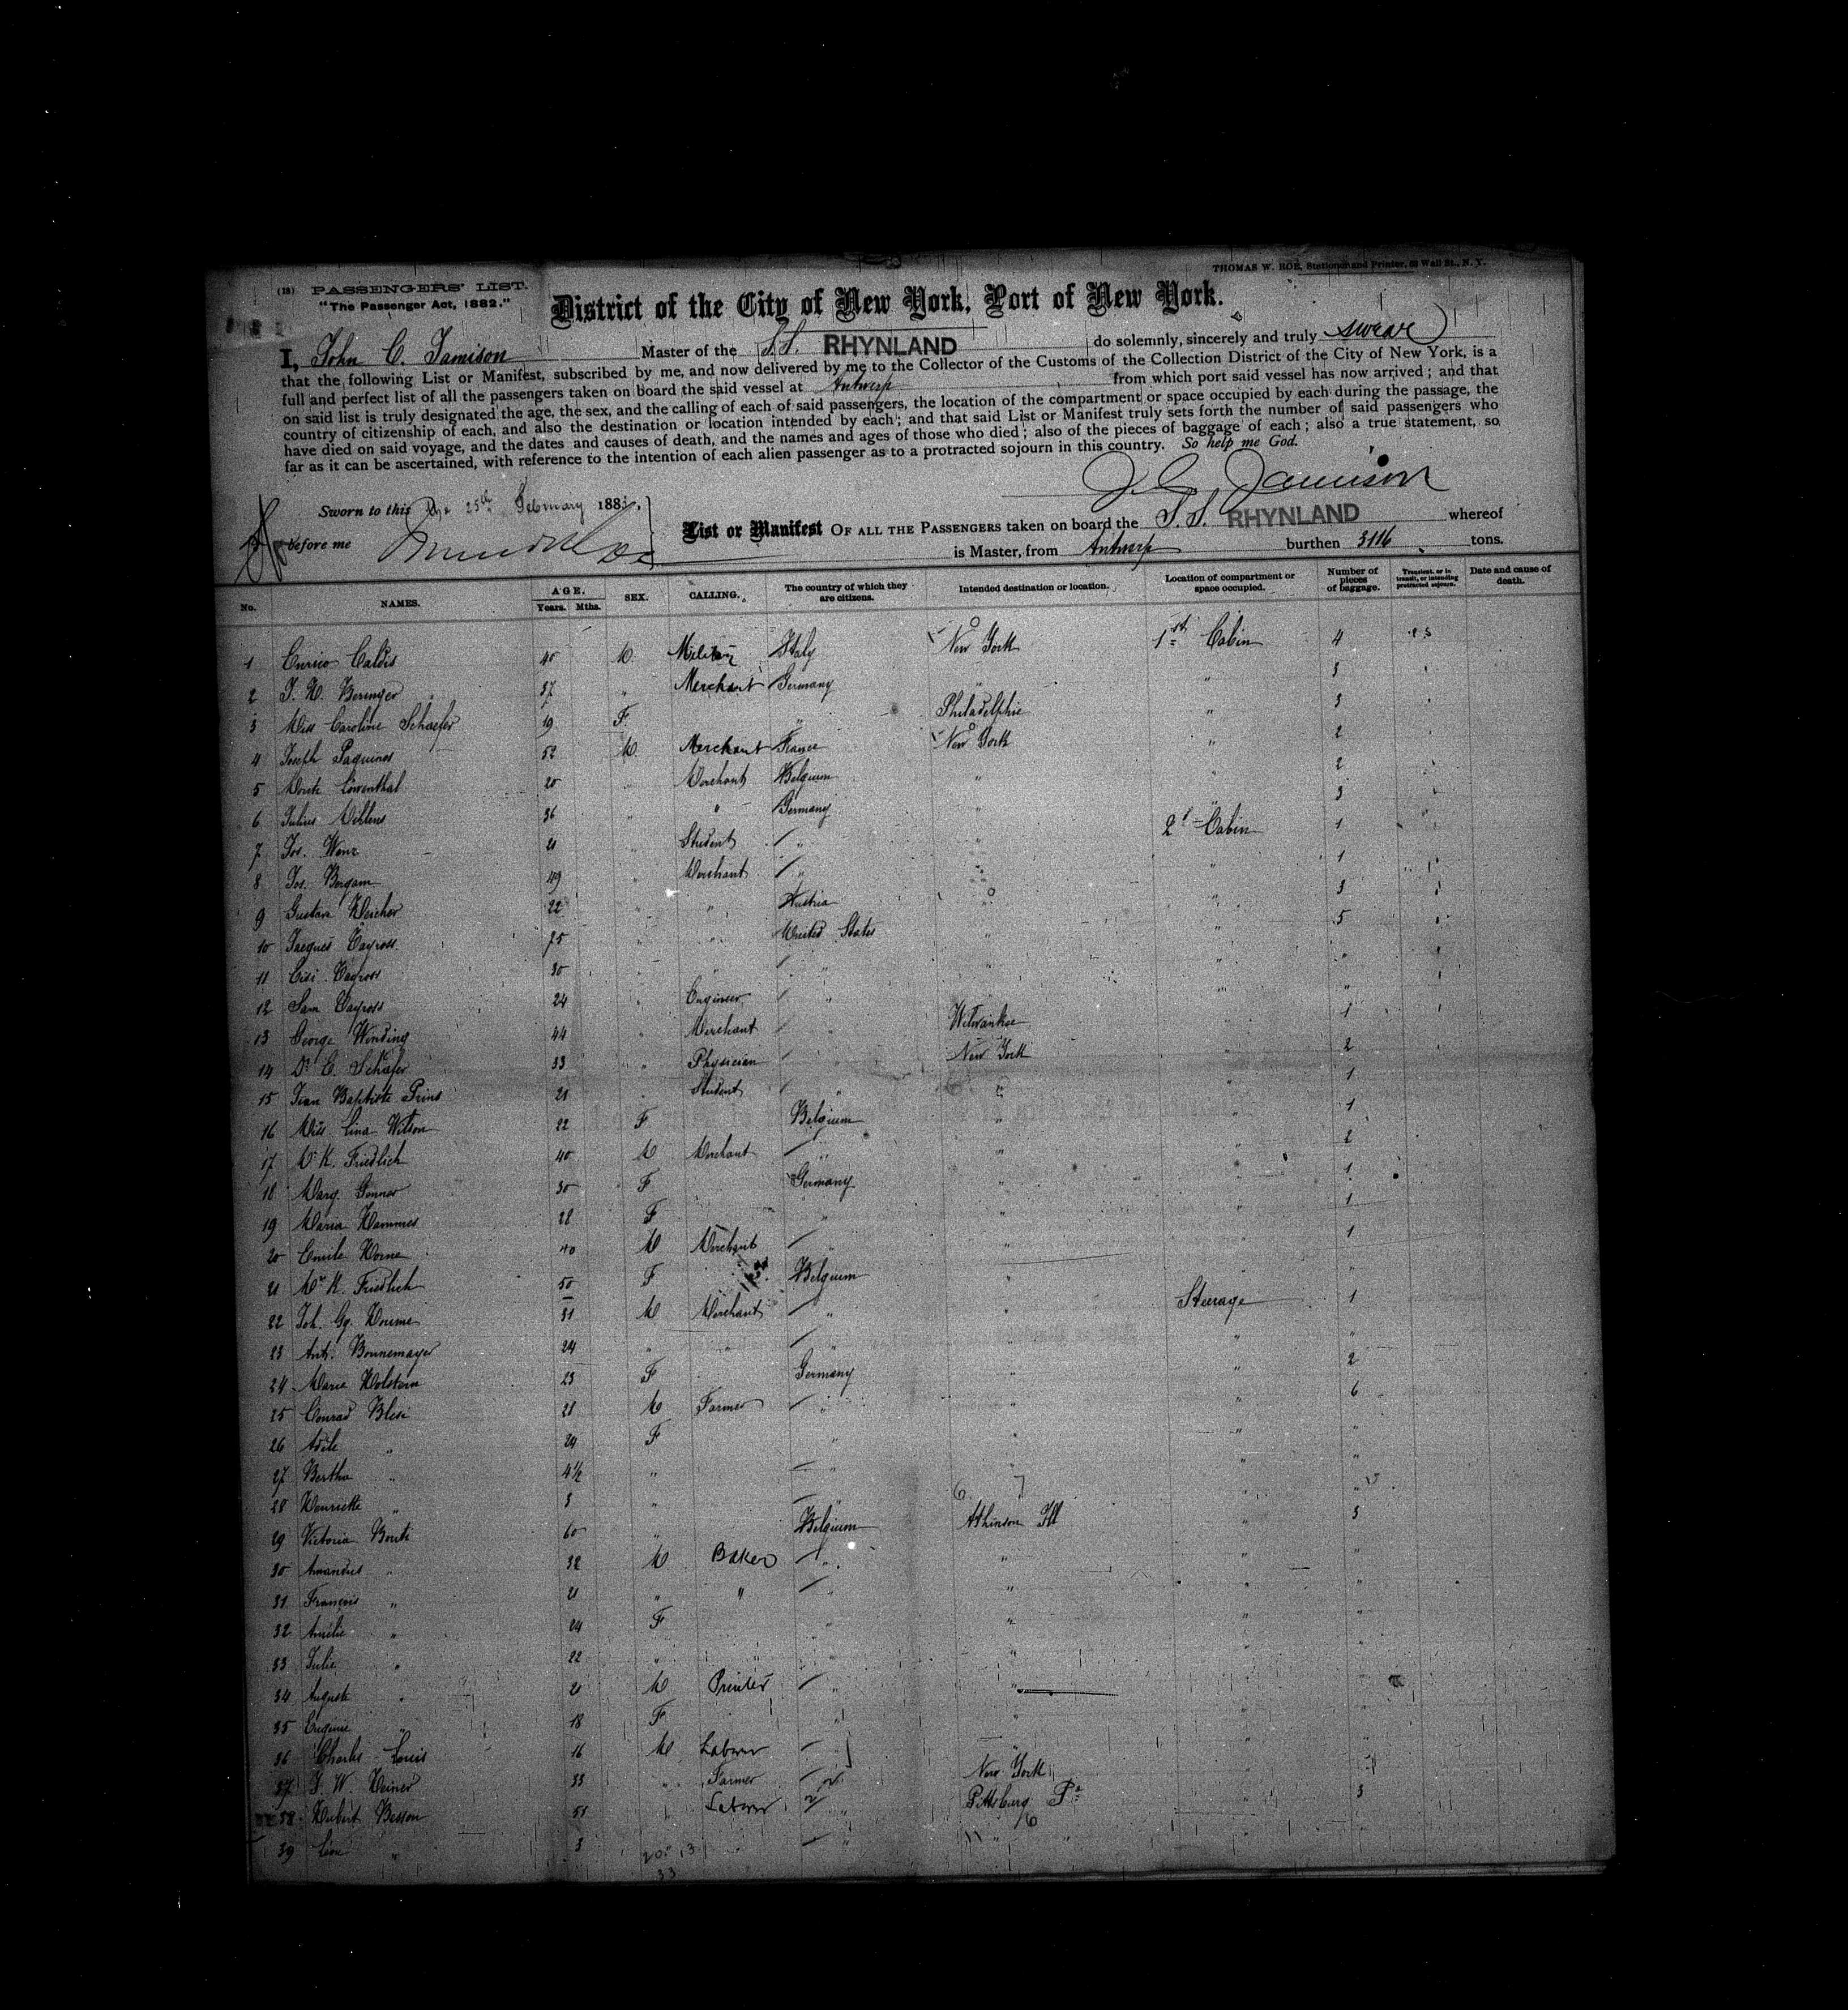 THOMAS W. ROE, Stationer and Printer, Wall St., N. Y.
(18) PASSENGERS' LIST.
"The Passenger Act, 1882."
District of the City of New York, Port of New York.
I, John C. Jamison Master of the S.S. RHYNLAND do solemnly, sincerely and truly swear
that the following List or Manifest, subscribed by me, and now delivered by me to the Collector of the Customs of the Collection District of the City of New York, is a
full and perfect list of all the passengers taken on board the said vessel at Antwerp from which port said vessel has now arrived; and that
on said list is truly designated the age, the sex, and the calling of each of said passengers, the location of the compartment or space occupied by each during the passage, the
country of citizenship of each, and also the destination or location intended by each; and that said List or Manifest truly sets forth the number of said passengers who
have died on said voyage, and the dates and causes of death, and the names and ages of those who died; also of the pieces of baggage of each; also a true statement, so
far as it can be ascertained, with reference to the intention of each alien passenger as to a protracted sojourn in this country. So help me God.
J. C. Jamison
Sworn to this 25th February 188
before me
List or Manifest OF ALL THE PASSENGERS taken on board the S.S. RHYNLAND whereof
is Master, from Antwerp burthen 3116 tons.
No. NAMES. AGE. Years. Mths. SEX. CALLING. The country of which they are citizens. Intended destination or location. Location of compartment or space occupied. Number of pieces of baggage. Transient, or in transit, or intending protracted sojourn. Date and cause of death.
1 Enrico Caldis 40 M. Military Italy New York 1st Cabin 4
2 J. H. Beringer 37 " Merchant Germany " " 3
3 Miss Caroline Schaefer 19 F. " Philadelphie " 3
4 Joseph Paquines 52 M. Merchant France New York " 2
5 Lowenthal 20 " Merchant Belgium " " 2
6 Julius 36 " " Germany " " 3
7 Jos. 21 " Student " " 2d Cabin 1
8 Jos. Bergam 49 " Merchant " " " 1
9 Gustave 22 " " Austria " " 3
10 Jacques Cayross 75 " " United States " " 5
11 Cayross 30 " " " " " "
12 Sam Cayross 24 " Engineer " " " "
13 George Winding 44 " Merchant " Milwaukee " 1
14 Dr. C. Schäfer 33 " Physician " New York " 2
15 Jean Baptiste Prins 21 " Student " " " 1
16 Miss Lina Wilson 22 F Belgium " " 1
17 Mr K. Friedlich 40 M Merchant " " " 2
18 Marg. 30 F Germany " " 1
19 Maria Hammes 28 F " " " 1
20 Emile Horne 40 M Merchant " " " 1
21 Mrs K. Friedlich 50 F Belgium " " "
22 Joh. Gg. 31 M Merchant " " Steerage 1
23 Ant. Bonnemayer 24 " " " " " "
24 Marie Holstein 23 F Germany " " 2
25 Conrad Blesi 28 M Farmer " " " 6
26 Adele " 24 F " " " "
27 Bertha " 4½ " " " " "
28 Henriette " 3 " " " "
29 Victoria Bonte 60 " Belgium Atkinson Ill " 3
30 Amandus " 32 M Baker " " " "
31 François " 21 " " " " " "
32 Amélie " 24 F " " " "
33 Julie " 22 " " " " "
34 Auguste " 21 M Printer " " " "
35 Eugenie " 18 F " " " "
36 Charles Louis 16 M Laborer " " " "
37 J. W. Heiner 33 " Farmer " New York "
38 Hubert Besson 51 " Laborer " Pittsburg Pa " 3
39 Léon " 3 " "